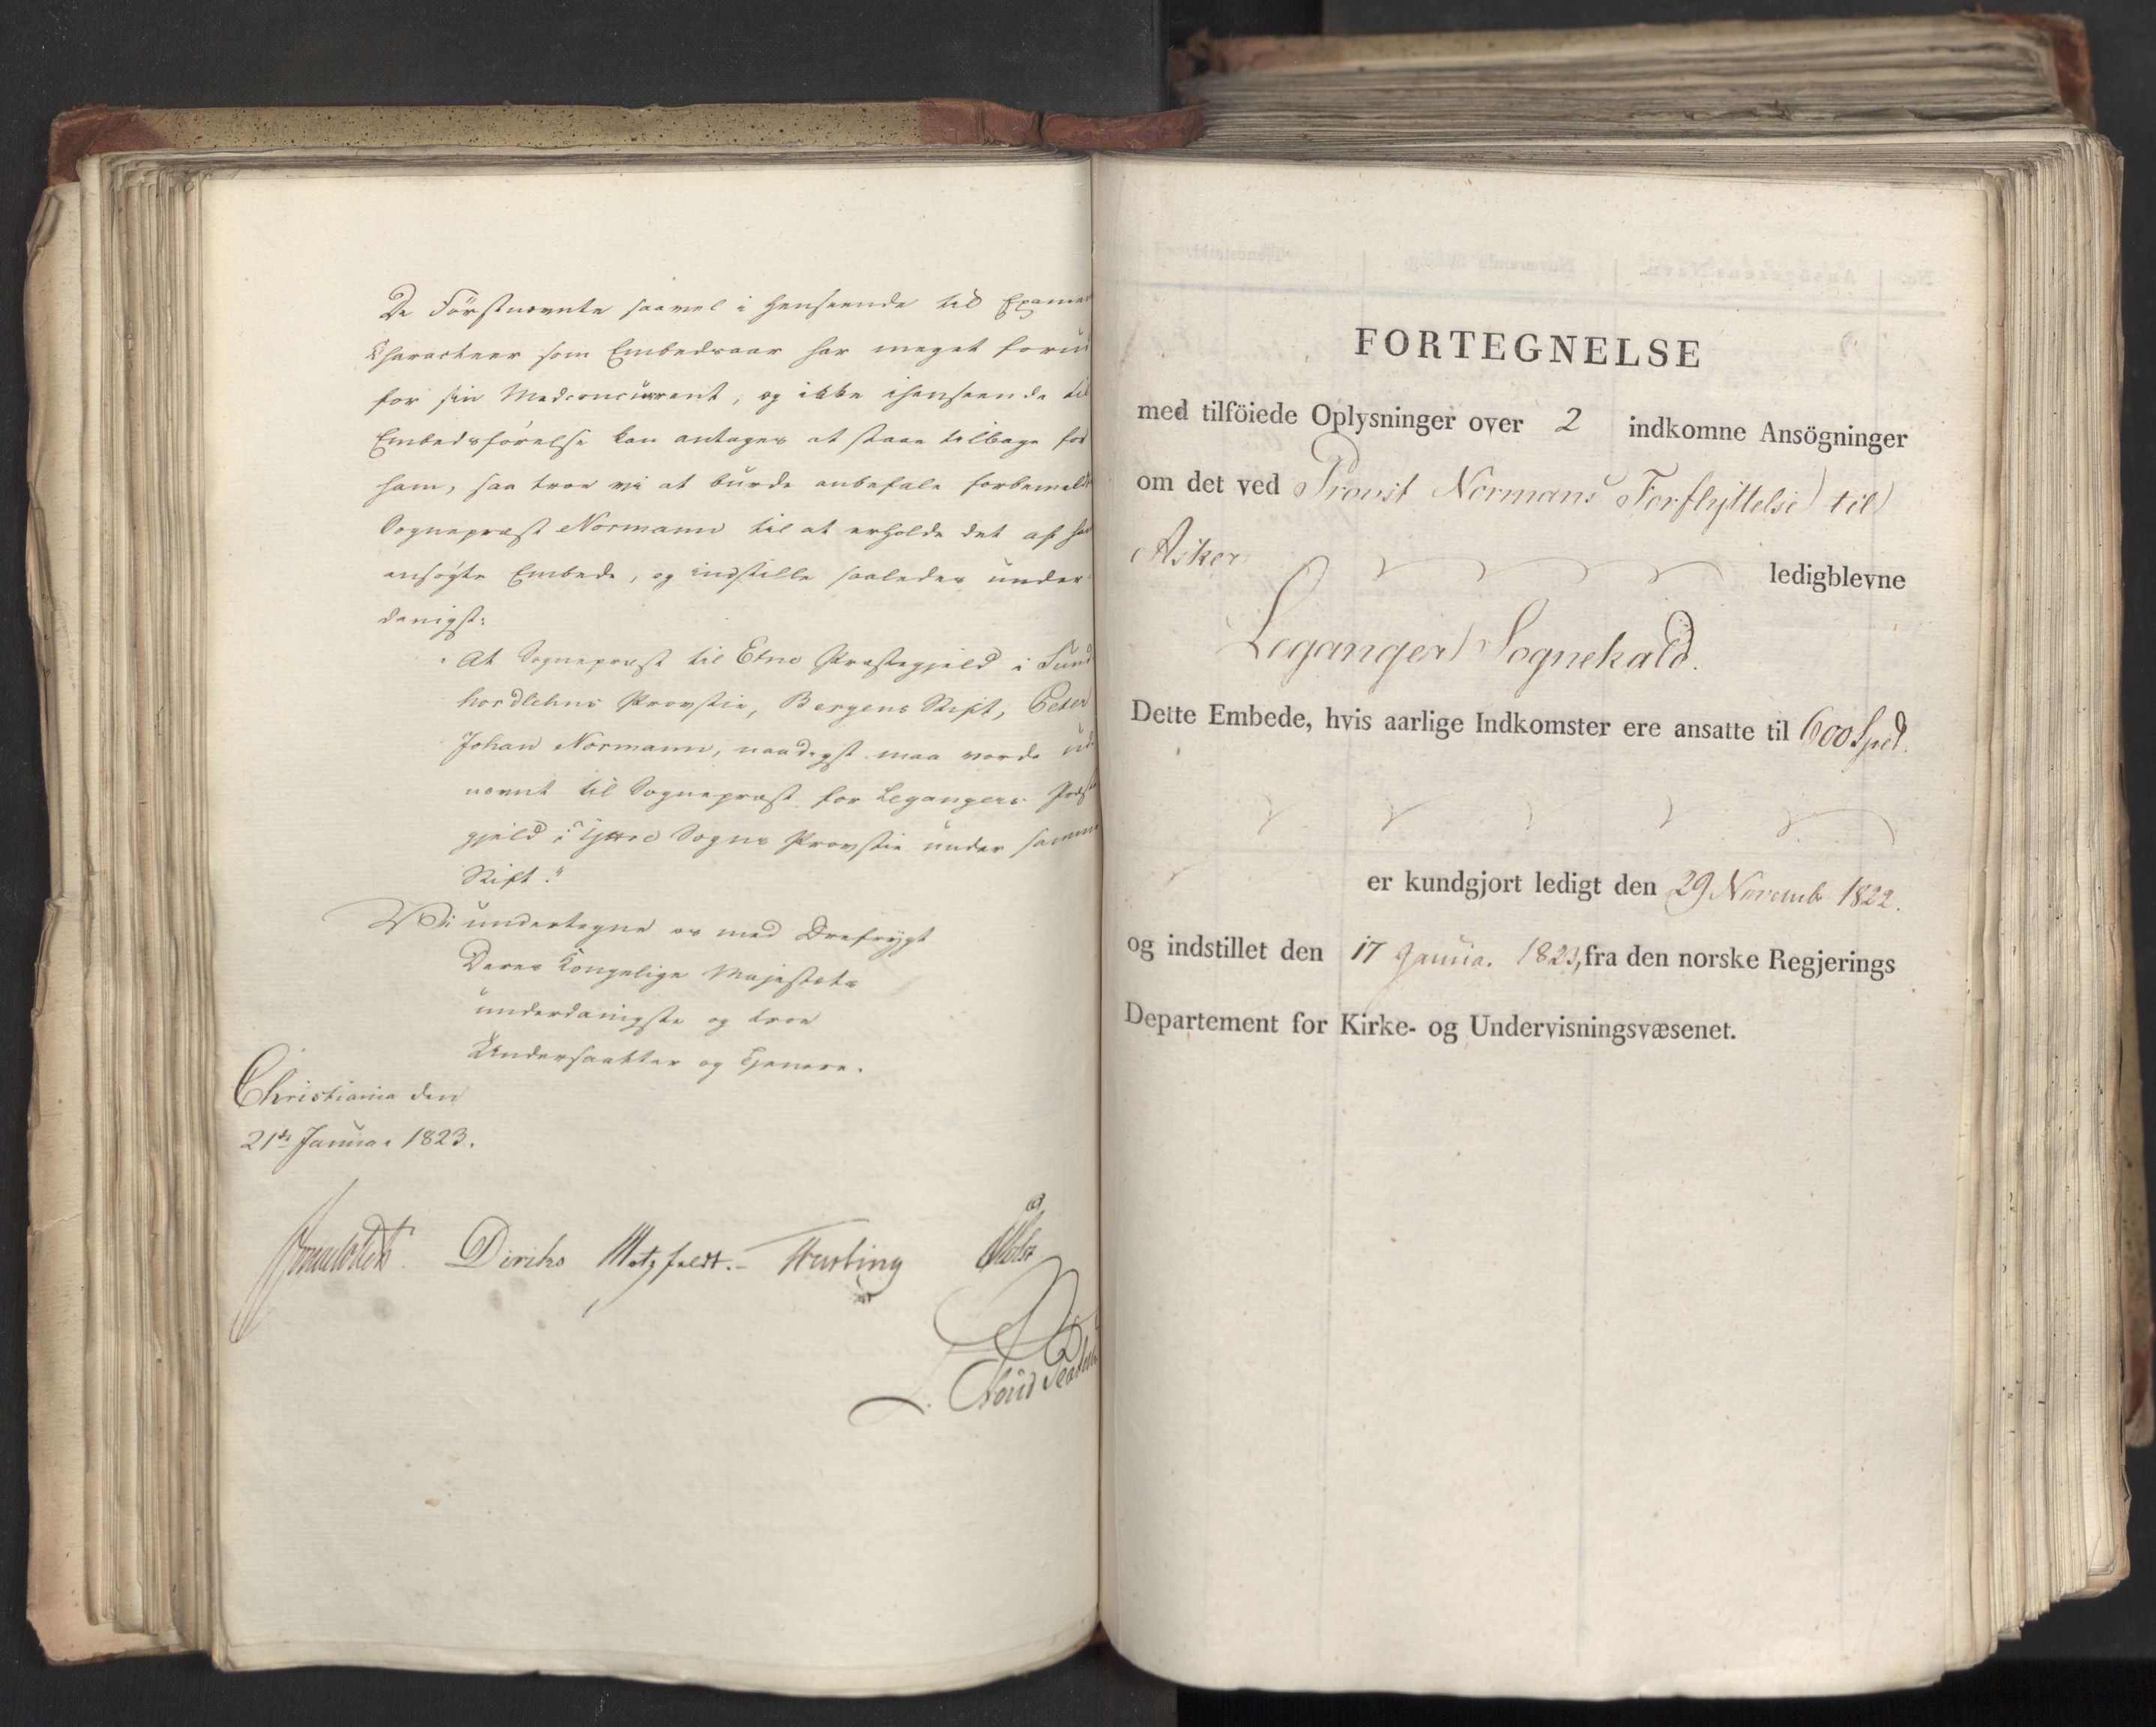 Da Förstnævnte saavel i Henseende til Examens
Characteer som Embedsaar har meget forud
for sin Medconcurrent, og ikke i Henseende til
Embedsførelse kan antages at staae tilbage for
ham, saa troe vi at burde anbefale forbemeldte
Sognepræst Normann til at erholde det af ham
ansøgte Embede, og indstille saaledes under-
danigst:
"At Sognepræst til Etne Præstegjeld i Sund-
hordlehns Provstie, Bergens Stift, Peter
Johan Normann, naadigst maa vorde ud-
nævnt til Sognepræst for Legangers Præste-
gjeld i Yttre Sogns Provstie under samme
Stift."
Vi undertegne os med Ærefrygt
Deres Kongelige Majestæts
underdanigste og troe
Undersaatter og Tjenere.
Christiania den
21de Januar 1823.
Sommerhielm Diriks Motzfeldt. Krebs

FORTEGNELSE
med tilföiede Oplysninger over 2 indkomne Ansögninger
om det ved Provst Normans Forflyttelse til
Asker ledigblevne
Leganger Sognekald.
Dette Embede, hvis aarlige Indkomster ere ansatte til 600 Spd.
er kundgjort ledigt den 29 Novemb 1822.
og indstillet den 17 Janua. 1823, fra den norske Regjerings
Departement for Kirke- og Undervisningsvæsenet.